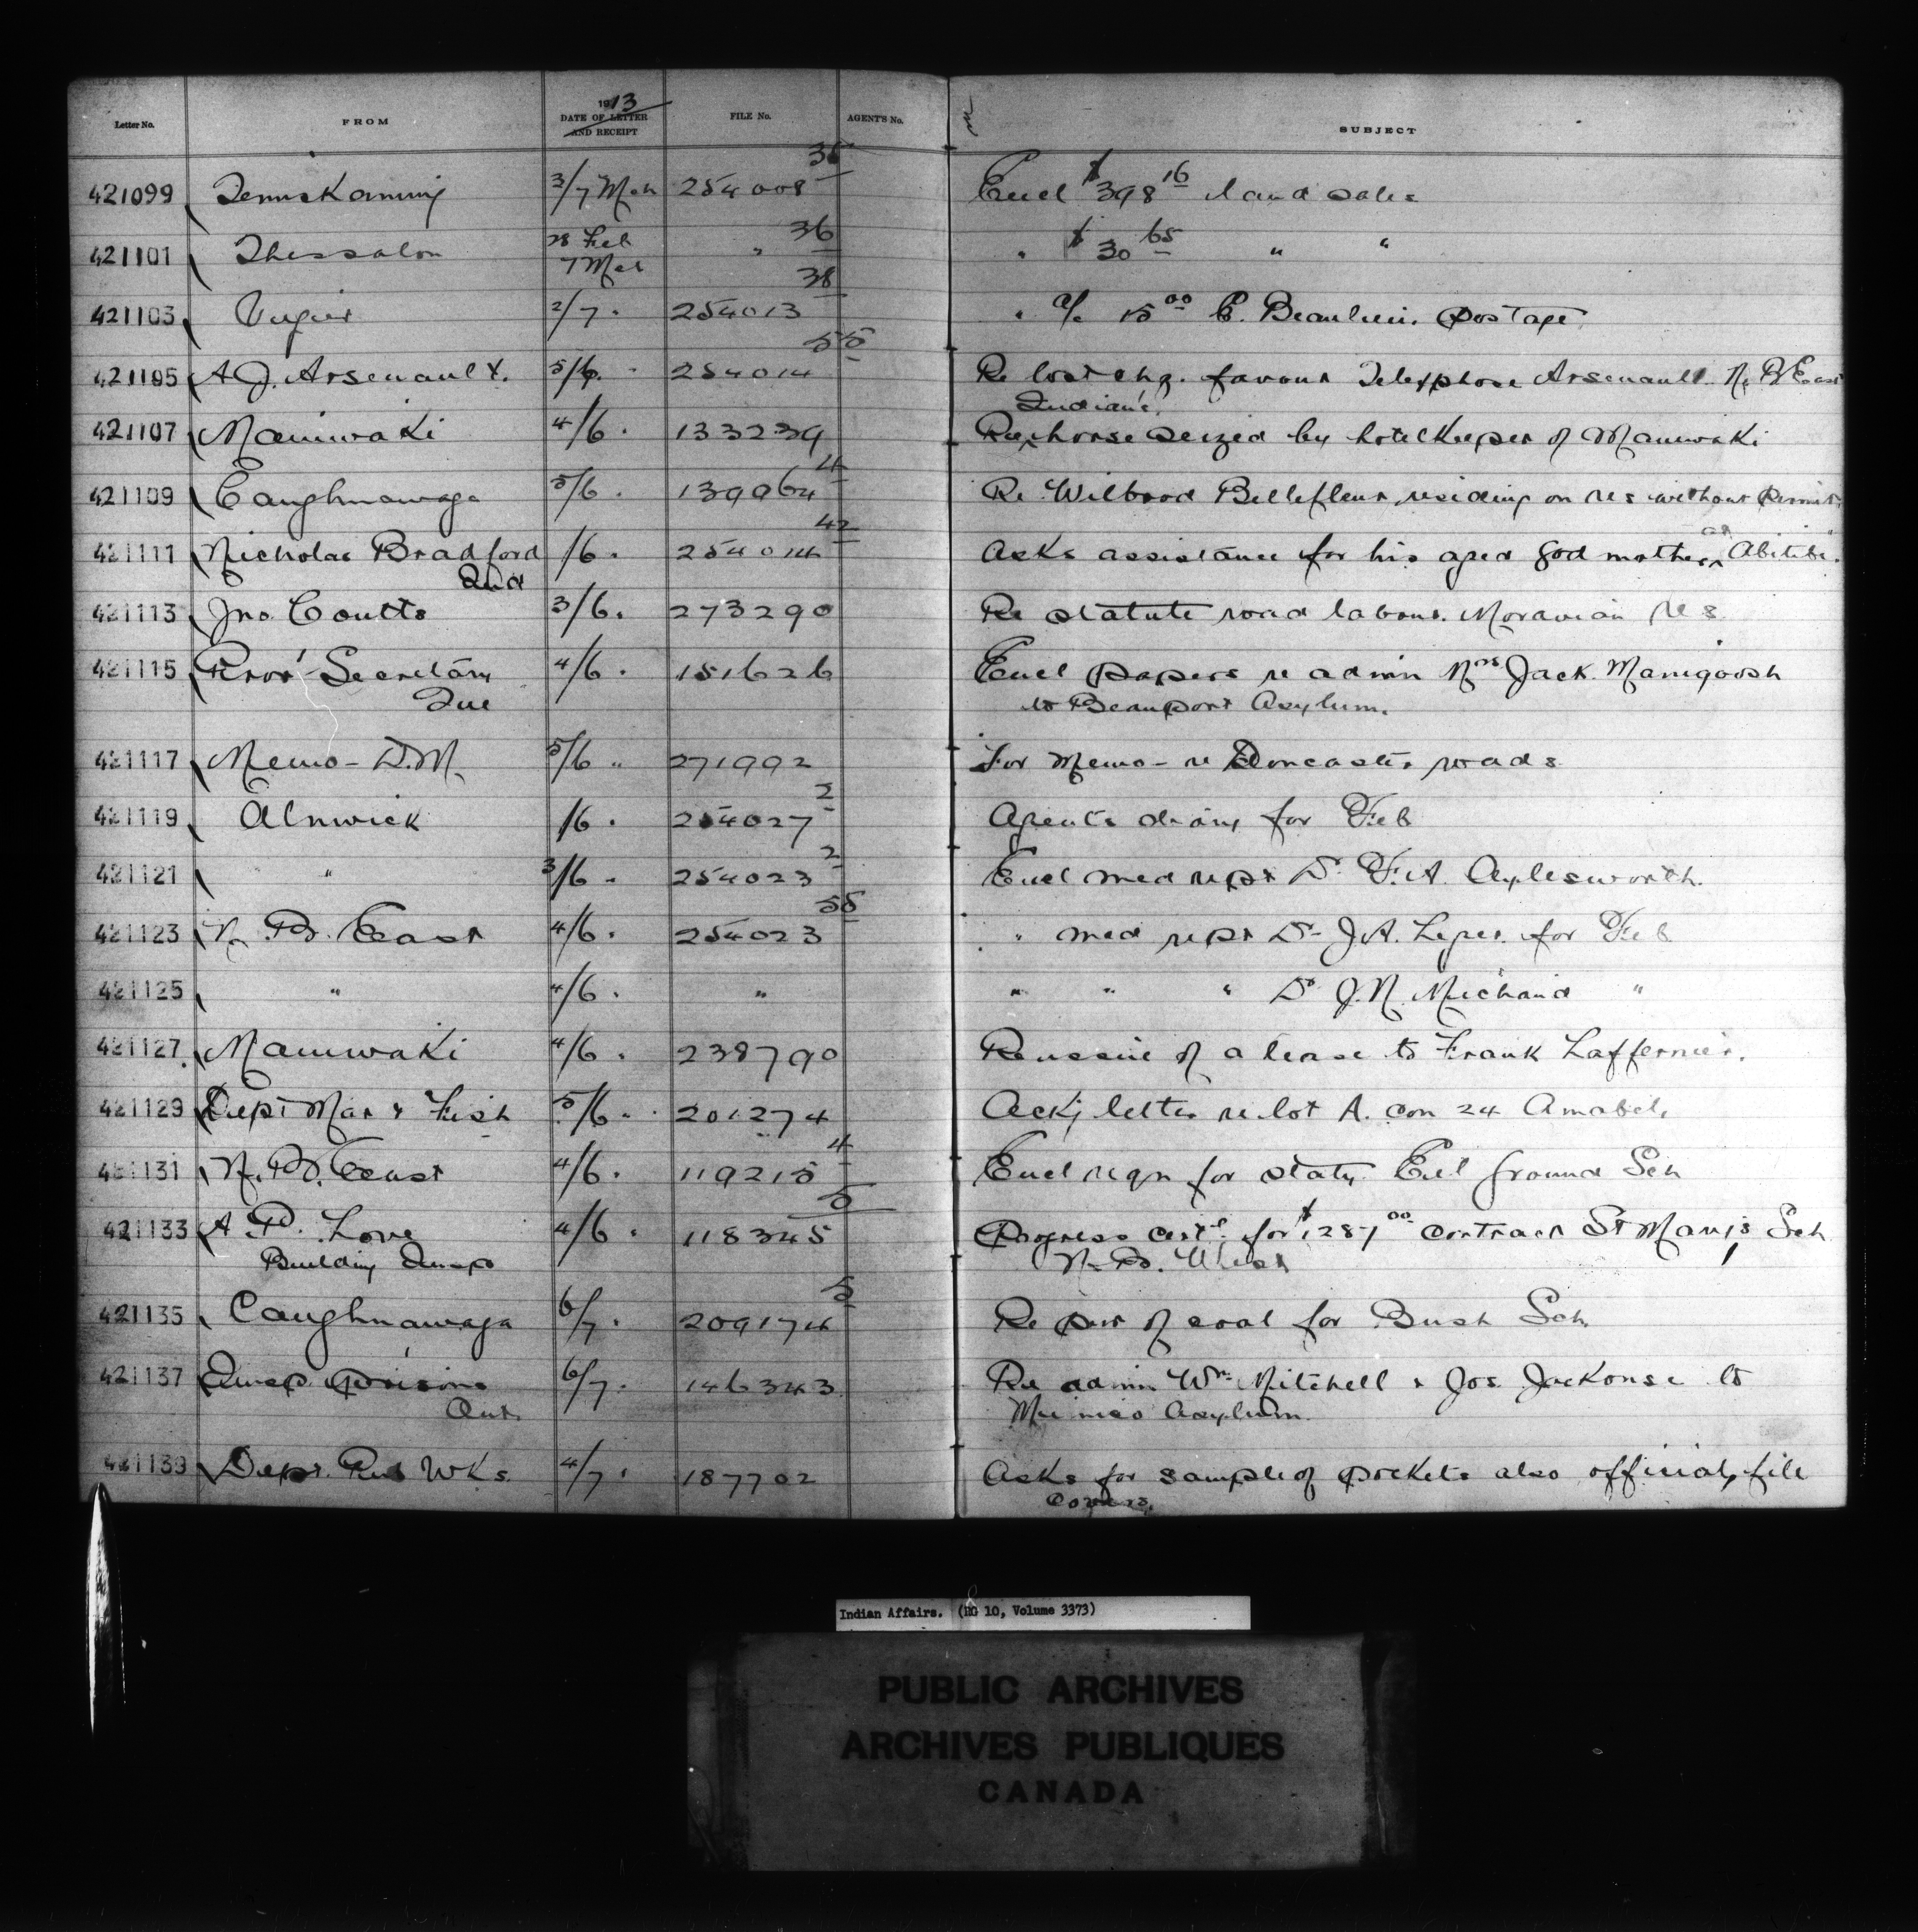 Letter No. FROM 1913 DATE OF LETTER AND RECEIPT FILE No. AGENT'S No. SUBJECT
421099 Temiskaming 3/7 Mch 254008 35 Encl $398 16 land sales
421101 Thessalon 28 Feb 7 Mch " 36 " $30 65 " "
421103 2/7 " 254013 38 " a/c 15 00 E. Beaulieu. postage
421105 A J. Arsenault. 5/6 " 254014 55 Re lost chq. favour Telesphose Arsenault. N. B East
Indian's.
421107 Maniwaki 4/6 " 133239 Re horse seized by hotelkeeper of Maniwaki
421109 Caughnawaga 5/6 " 139964 4 Re Wilbrod Bellefleur, residing on res without permit.
421111 Nicholas Bradford /6 " 254014 42 Asks assistance for his aged god mother at Abitibi.
Ind
421113 Jno. Coutts 3/6 " 273290 Re statute road labour. Moravian res
421115 Prov' Secretary 4/6 " 151626 Encl papers re admn Mrs Jack. Manigoosh
Que to Beauport Asylum.
421117 Memo - D.M. 5/6 " 271992 For Memo - re Doncaster roads
421119 Alnwick /6 " 254027 2 Agents diary for Feb
421121 " 3/6 " 254023 2 Encl med rept Dr F.A. Aylesworth.
421123 N. B. East 4/6 " 254023 55 " med rept Dr J.A. Leger. for Feb
421125 " 4/6 " " " " " Dr J.N. Michaud "
421127 Maniwaki 4/6 " 238790 Re issue of a lease to Frank Laffernier.
421129 Dept Mar & Fish 5/6 " 201274 Ackg letter re lot A. con 24 Amabel.
421131 N. B. East 4/6 " 119215 4 Encl reqn for staty. Eel Ground Sch
421133 A P. Love 4/6 " 118345 5 Progress cert. for $1287 00 contract St Mary's Sch
Building Insp N. B. West
421135 Caughnawaga 6/7 " 209174 5 Re pur of coal for Bush Sch.
421137 Insp. Prisons 6/7 " 146343 Re admn Wm. Mitchell & Jos. Jackonse to
Ont. Mimico Asylum.
421139 Dept. Pub Wks. 4/7 " 187702 Asks for sample of pockets also official file
covers.
Indian Affairs. (RG 10, Volume 3373)
PUBLIC ARCHIVES
ARCHIVES PUBLIQUES
CANADA